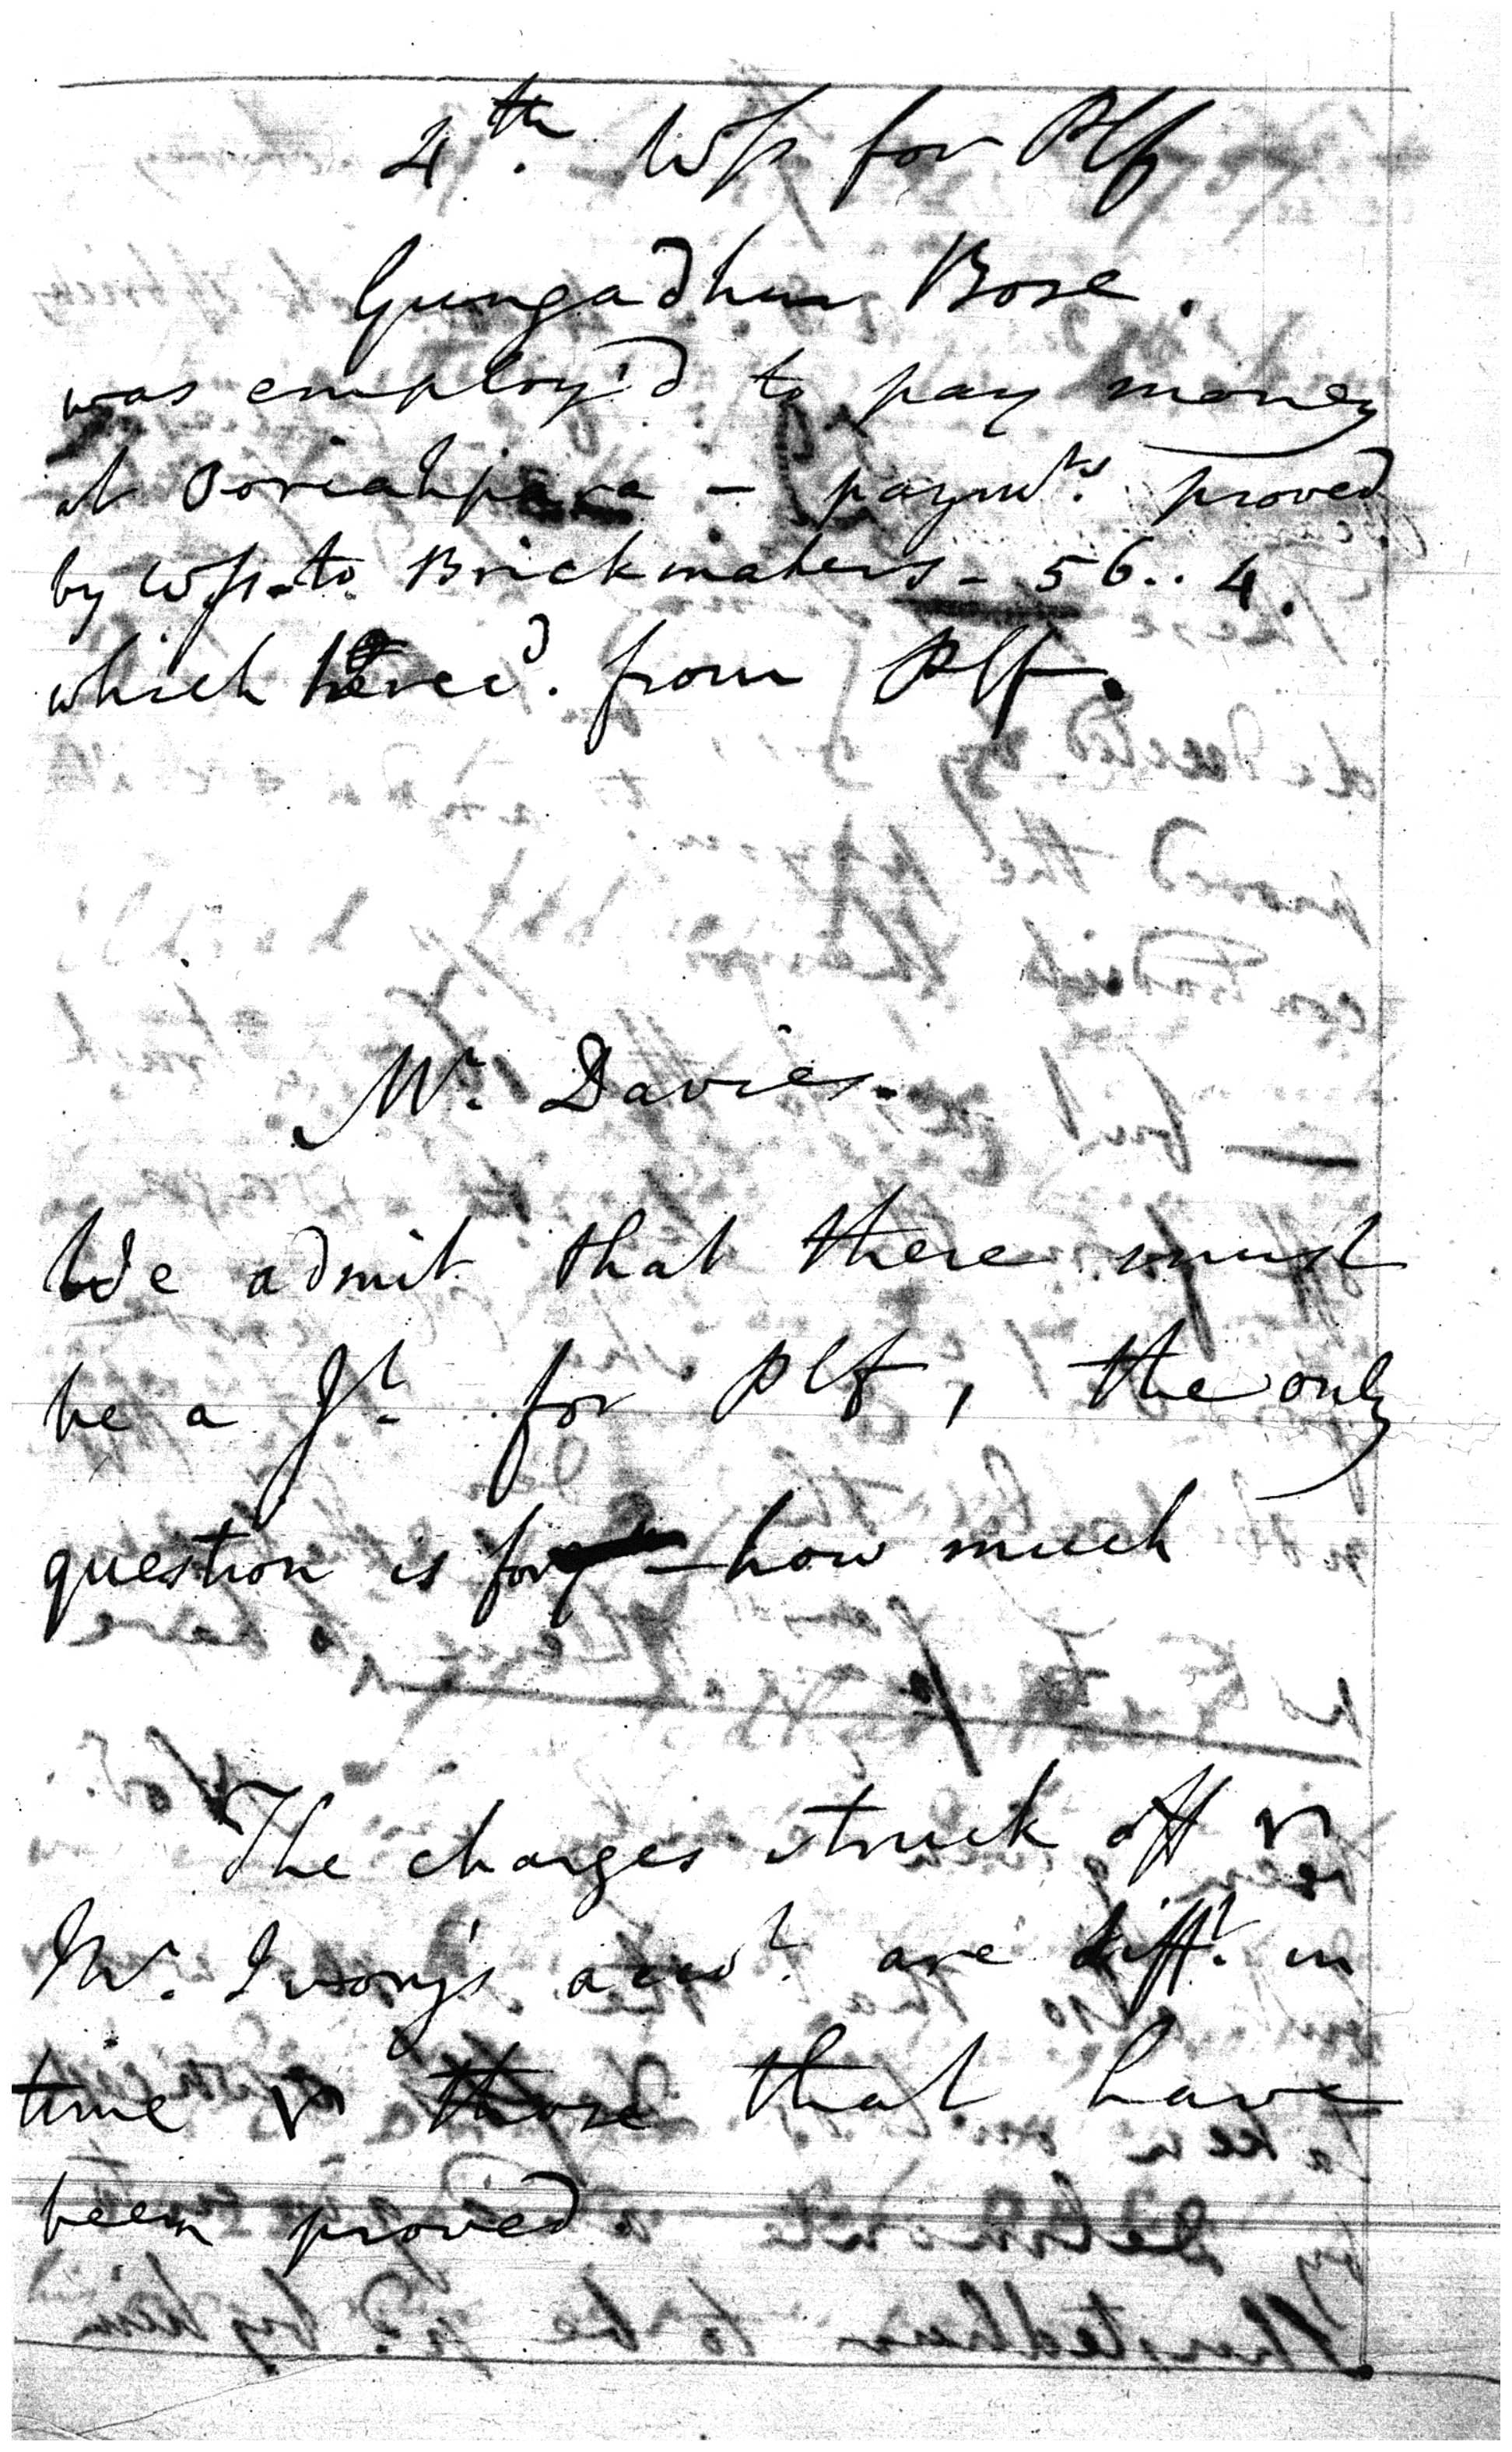 4th. Wss for Plf
Gungadhur Bose.
was employ'd to pay money
at Ooriahpara - paymts. proved
by Wss. to Brickmakers - 56.. 4.
which he recd. from Plf.
Mr. Davies.
We admit that there must
be a Jt. for Plf, the only
question is for - how much
The charges struck off
Mr. acct. are difft. in
time those that have
been proved